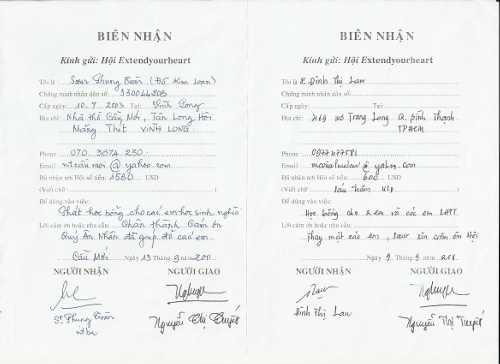 BIÊN NHẬN
Kính gửi: Hội Extendyourheart
Tôi là: Sœur Phụng Toàn (Đỗ Kim Loan)
Chứng minh nhân dân số: 330044203
Cấp ngày: 10.7.2003 Tại: Vĩnh Long
Địa chỉ: Nhà thờ Cầu Mới, Tân Long Hội
Măng Thít VINH LONG
Phone: 070 3874 230
Email: ntcaumoi@yahoo.com
Đã nhận nơi Hội số tiền: 1560 USD
(Viết chữ)
Để dùng vào việc:
Phát học bổng cho các em học sinh nghèo
Lời cảm ơn hoặc nhu cầu: Chân thành Cám ơn
Quý Ân Nhân đã giúp đỡ các em
Cầu Mới Ngày 13 tháng 9 năm 2011
NGƯỜI NHẬN NGƯỜI GIAO
Sr Phụng Toàn Nguyễn Thị Tuyết
BIÊN NHẬN
Kính gửi: Hội Extendyourheart
Tôi là: Đinh Thị Lan
Chứng minh nhân dân số:
Cấp ngày: Tại:
Địa chỉ: Q. Bình Thạnh
TPHCM
Phone: 0977477581
Email: @yahoo.com
Đã nhận nơi Hội số tiền: 600 USD
(Viết chữ) Sáu trăm USD
Để dùng vào việc:
Học bổng cho và các em
Lời cảm ơn hoặc nhu cầu:
Thay mặt các em, xin cảm ơn Hội
Ngày 9 tháng 9 năm 2011
NGƯỜI NHẬN NGƯỜI GIAO
Đinh Thị Lan Nguyễn Thị Tuyết